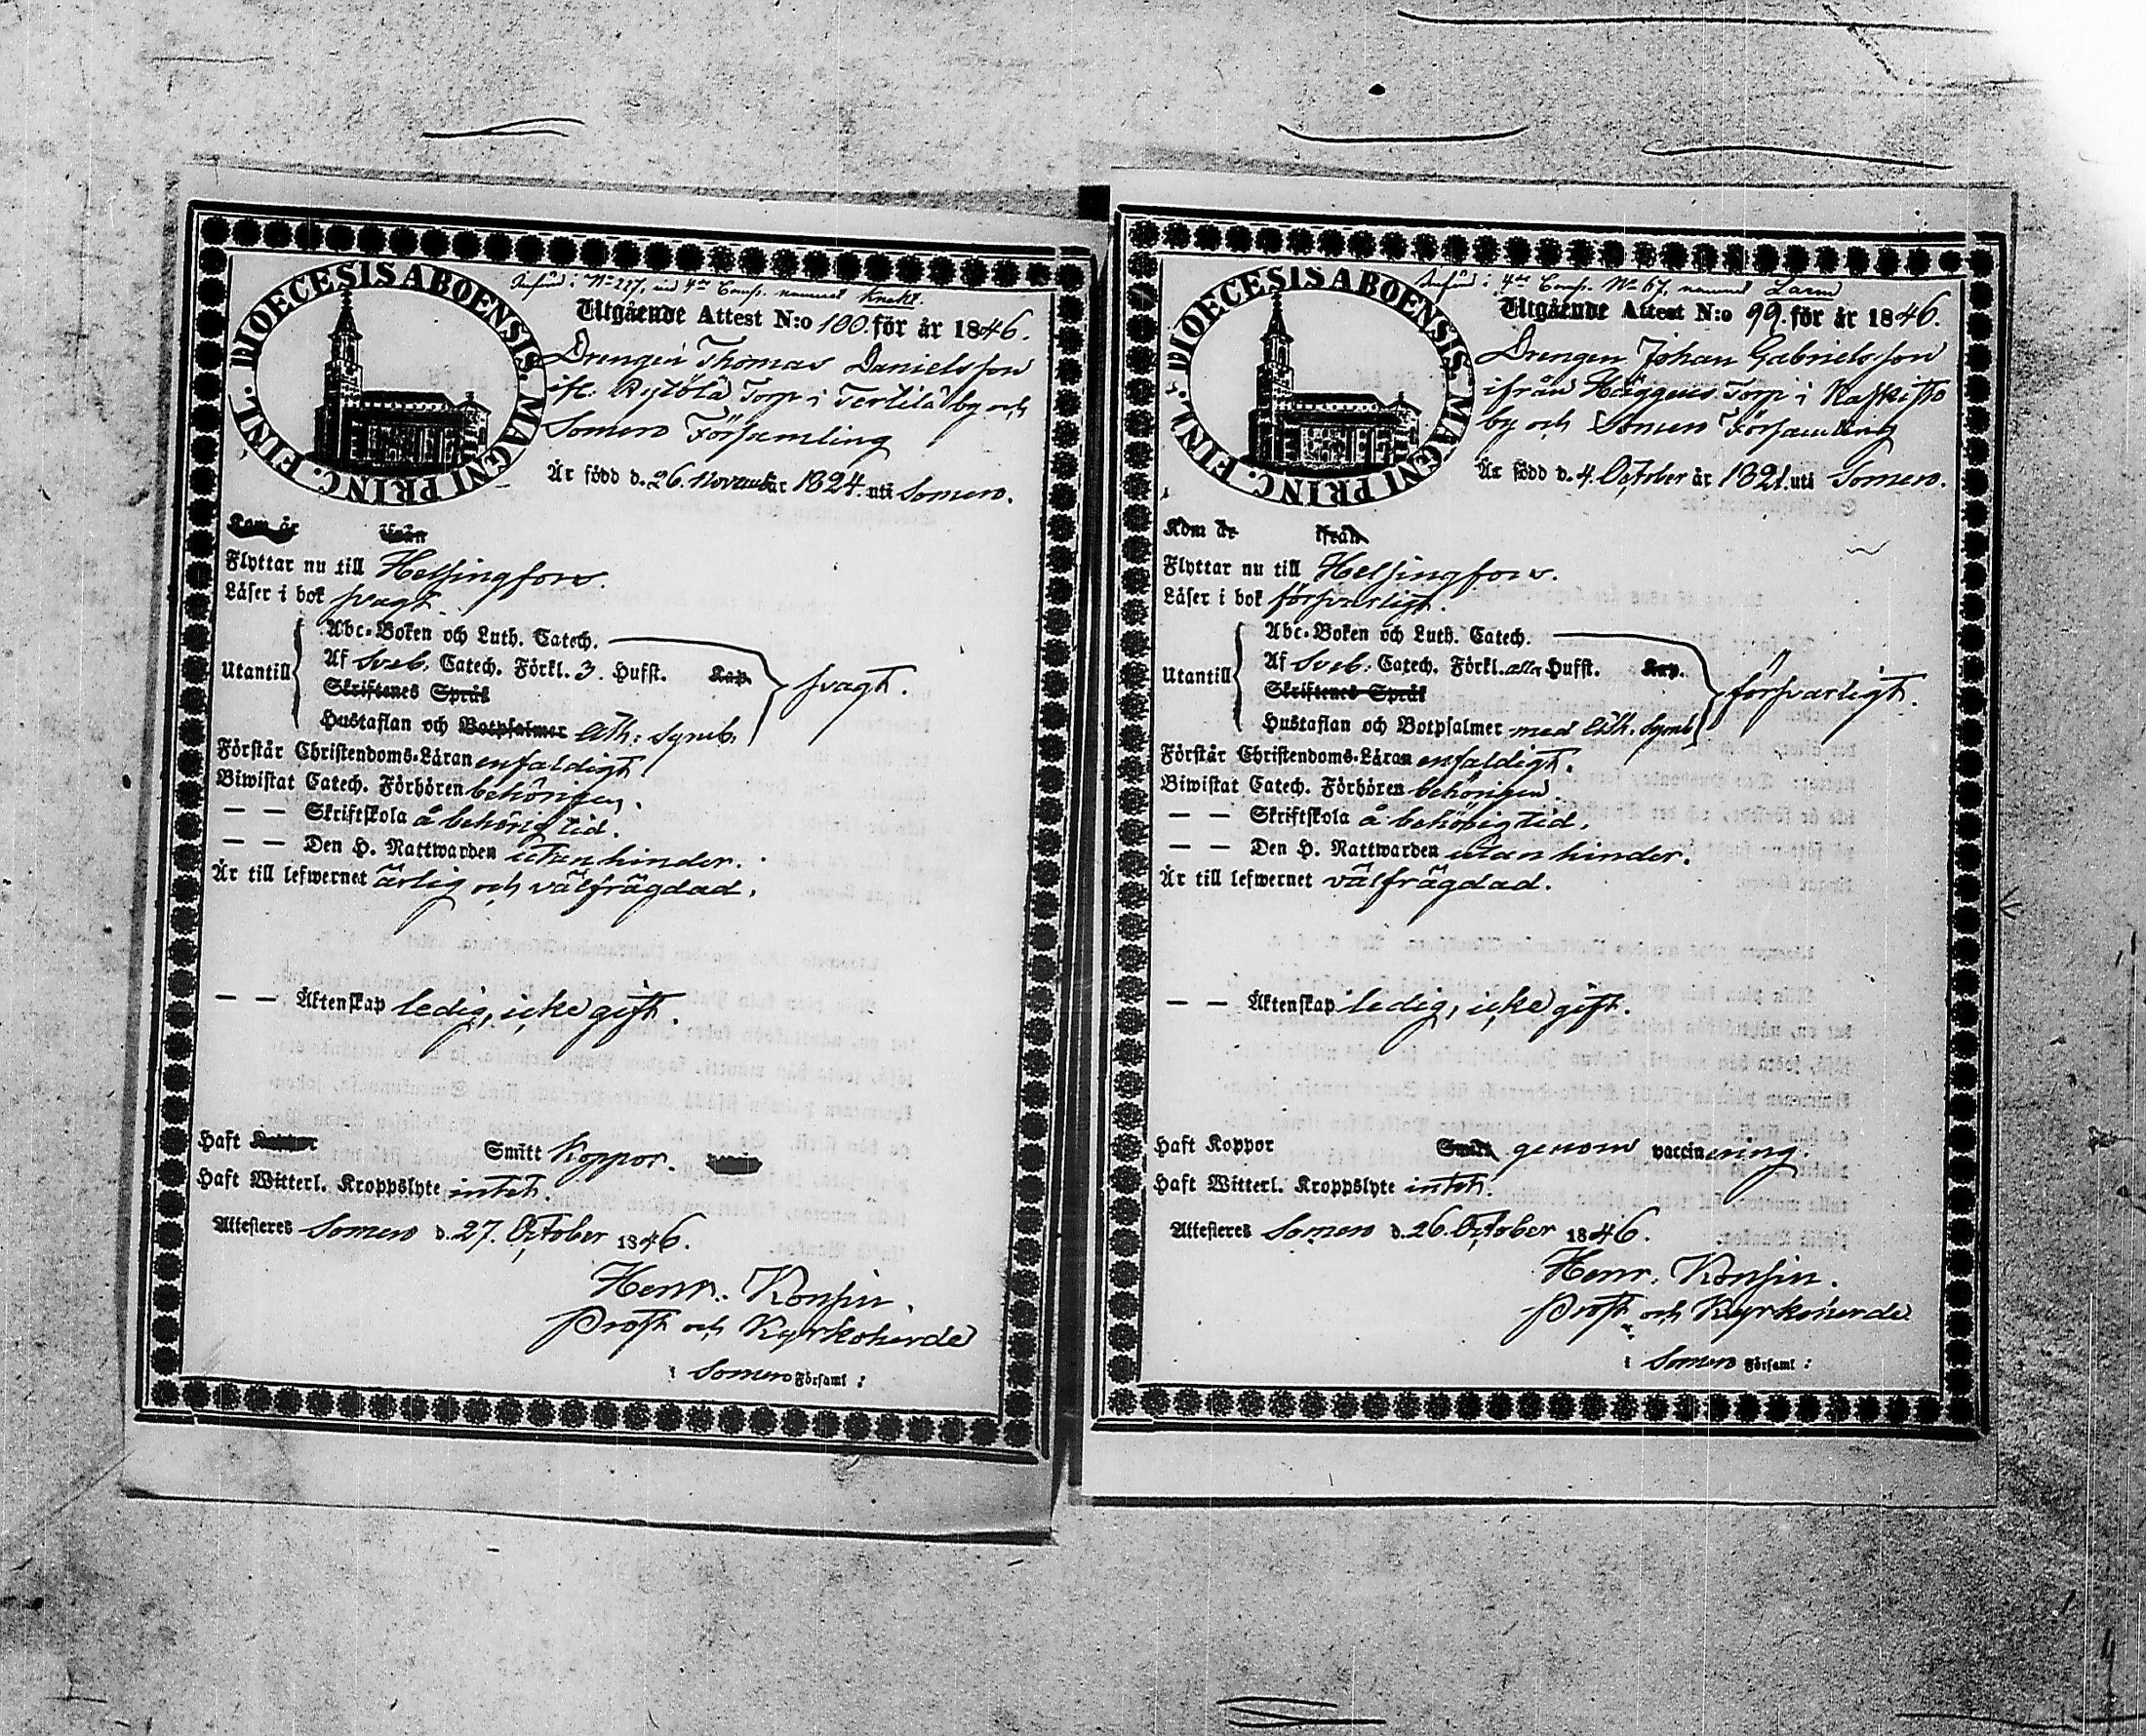 DIOECESIS ABOENSIS. MAGNI PRINC. FINL.
4de Comp. nummret Knekt.
Utgående Attest N:o 100. för år 1846.
Drengen Thomas Danielsson
ifr. Torp i Terttilä by och
Somero Församling
Är född d. 26. November 1824. uti Somero.
Kom år ifrån
Flyttar nu till Helsingfors.
Läser i bok svagt.
Utantill
Abc-Boken och Luth. Catech.
Af Sveb. Catech. Förkl. 3. Hufst. Kap.
Skriftenes Språk
Hustaflan och Botpsalmer Ath: Symb.
svagt.
Förstår Christendoms-Läran enfaldigt.
Biwistat Catech. Förhören behörigen.
— — Skriftskola å behörig tid.
— — Den H. Nattwarden utan hinder.
Är till lefwernet ärlig och välfrägdad.
— — Äktenskap ledig, icke gift.
Haft Koppor Smitt Koppor.
Haft Witterl. Kroppslyte intet.
Attesteres Somero d. 27. October 1846.
Henr. Konsin.
Prost och Kyrkoherde
i Somero Församl:
DIOECESIS ABOENSIS. MAGNI PRINC. FINL.
Införd i 4de Comp. No 67. nummret Larm
Utgående Attest N:o 99. för år 1846.
Drengen Johan Gabrielsson
ifrån Häggens Torp i Kaskisto
by och Somero Församling
Är född d. 4. October år 1821. uti Somero.
Kom år ifrån
Flyttar nu till Helsingfors.
Läser i bok försvarligt.
Utantill
Abc-Boken och Luth. Catech.
Af Sveb. Catech. Förkl. alla Hufst. Kap.
Skriftenes Språk
Hustaflan och Botpsalmer med Ath. Symb
försvarligt.
Förstår Christendoms-Läran enfaldigt.
Biwistat Catech. Förhören behörigen.
— — Skriftskola å behörig tid.
— — Den H. Nattwarden utan hinder.
Är till lefwernet välfrägdad.
— — Äktenskap ledig, icke gift.
Haft Koppor Smitt genom vaccinering.
Haft Witterl. Kroppslyte intet.
Attesteres Somero d. 26. October 1846.
Henr. Konsin.
Prost och Kyrkoherde
i Somero Församl: